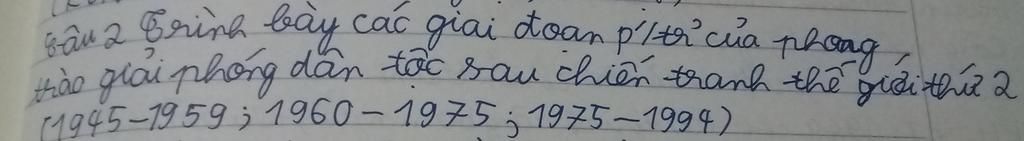 Câu 2 Trình bày các giai đoan p/trỉ của phong
trào giải phóng dân tộc sau chiến tranh thế giới thứ 2
(1945-1959; 1960-1975; 1975-1994)